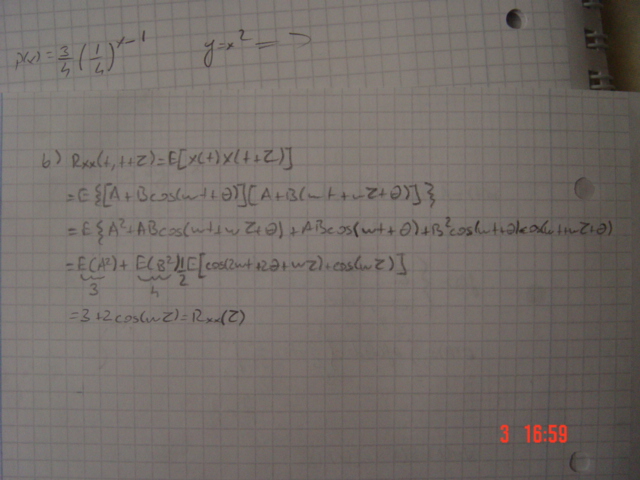 p(x) = 3/4 (1/4)^x-1 y=x² =
b) Rxx(t,t+τ)=E[x(t)x(t+τ)]
=E{[A+Bcos(wt+θ)][A+B(wt+wτ+θ)]}
=E{A²+ABcos(wt+wτ+θ)+ABcos(wt+θ)+B²cos(wt+θ)cos(wt+wτ+θ)
=E(A²)+E(B²)1/2E[cos(2wt+2θ+wτ)+cos(wτ)]
3 4
=3+2cos(wτ)=Rxx(τ)
3 16:59